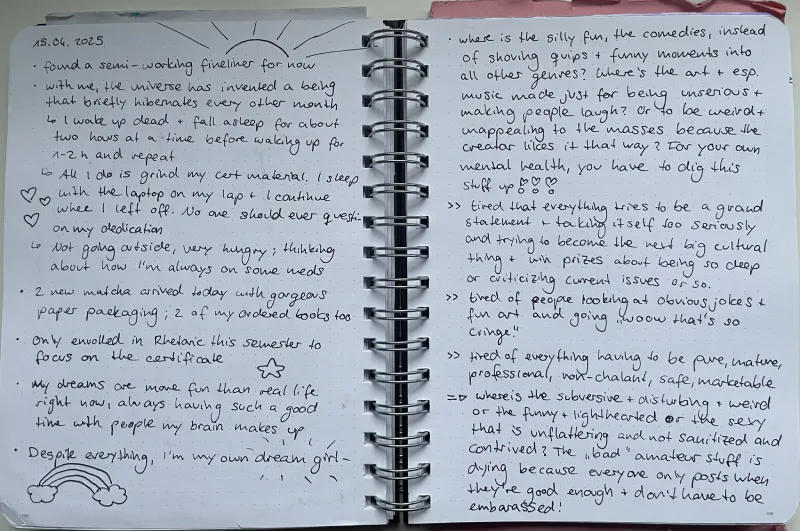 15.04.2025
· found a semi-working fineliner for now
· with me, the universe has invented a being
that briefly hibernates every other month
↳ I wake up dead + fall asleep for about
two hours at a time before waking up for
1-2 h and repeat
↳ All I do is grind my cert material. I sleep
with the laptop on my lap + I continue
where I left off. No one should ever questi-
on my dedication
↳ Not going outside, very hungry; thinking
about how I'm always on some meds
· 2 new matcha arrived today with gorgeous
paper packaging; 2 of my ordered books too
· Only enrolled in Rhetoric this semester to
focus on the certificate
· My dreams are more fun than real life
right now, always having such a good
time with people my brain makes up
· Despite everything, I'm my own dream girl-
· where is the silly fun, the comedies, instead
of shoving quips + funny moments into
all other genres? Where's the art + esp.
music made just for being unserious +
making people laugh? Or to be weird +
unappealing to the masses because the
creator likes it that way? For your own
mental health, you have to dig this
stuff up
>> tired that everything tries to be a grand
statement + taking itself too seriously
and trying to become the next big cultural
thing + win prizes about being so deep
or criticizing current issues or so.
>> tired of people looking at obvious jokes +
fun art and going „woow that's so
cringe."
>> tired of everything having to be pure, mature,
professional, non-chalant, safe, marketable
=> where is the subversive + disturbing + weird
or the funny + lighthearted or the sexy
that is unflattering and not sanitized and
contrived? The „bad" amateur stuff is
dying because everyone only posts when
they're good enough + don't have to be
embarassed!